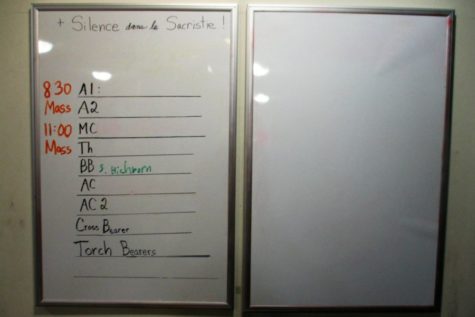 + Silence dans la Sacristie !
8 30 A1:
Mass A2
11:00 MC
Mass Th
BB S. Hichborn
AC
AC 2
Cross Bearer
Torch Bearers